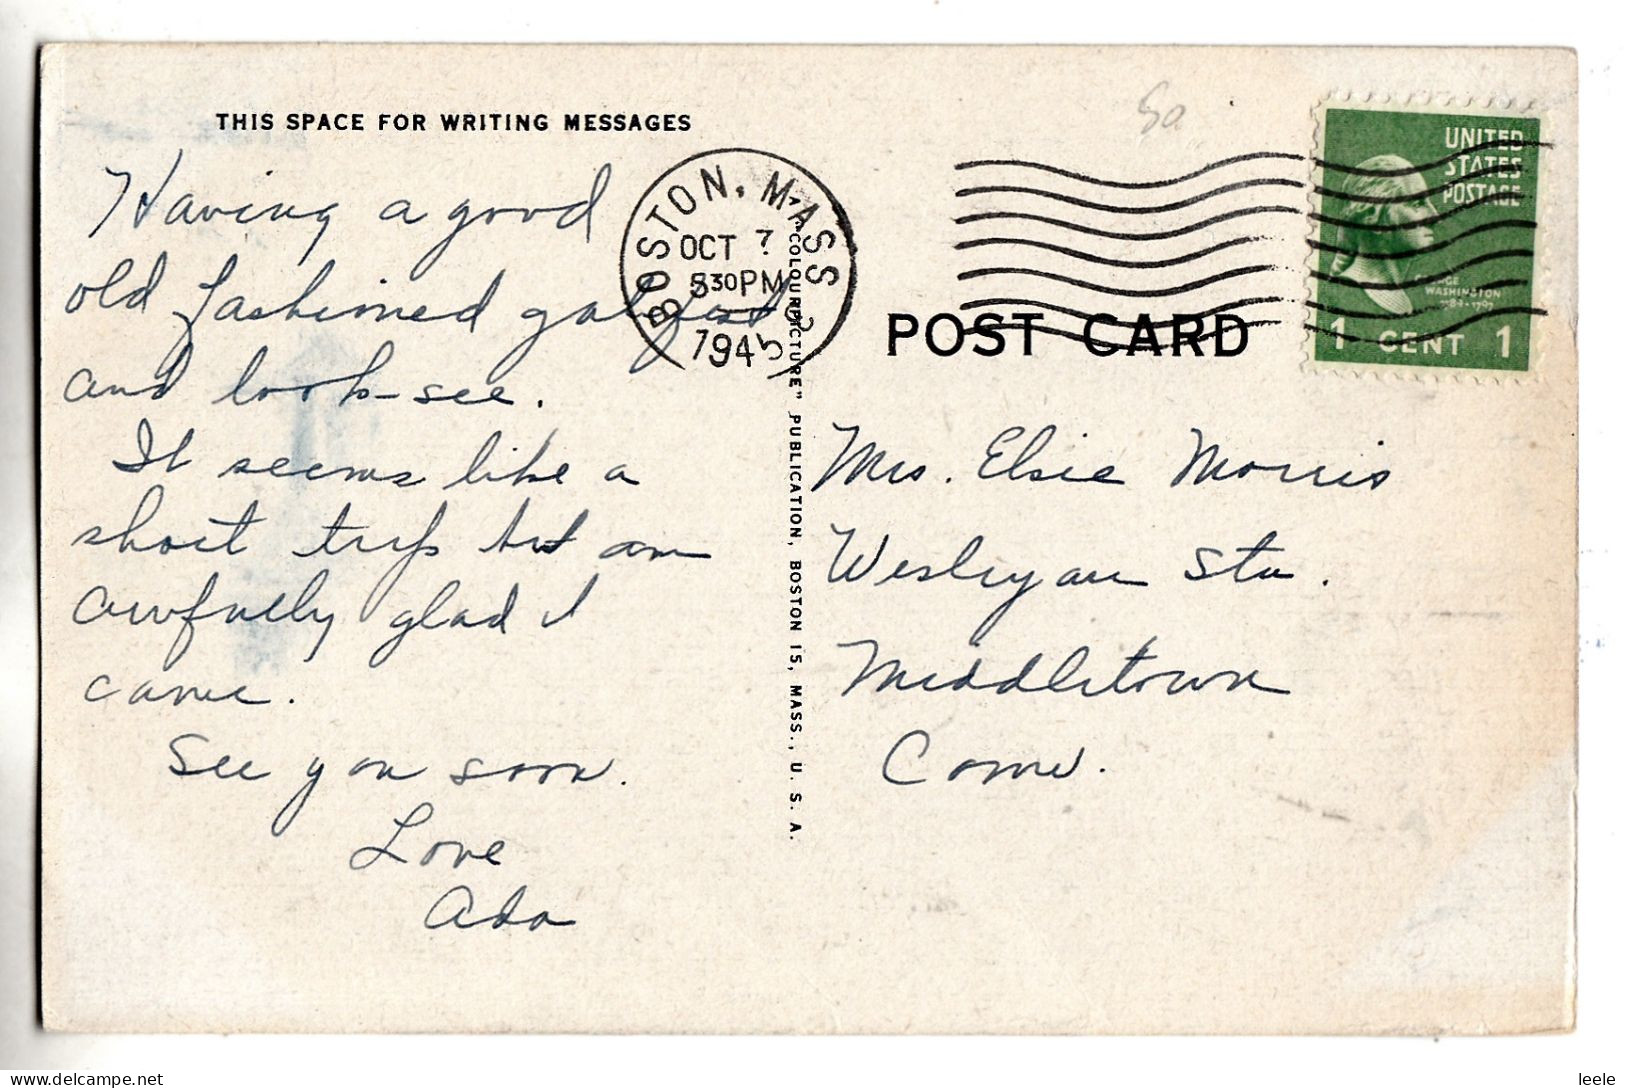 THIS SPACE FOR WRITING MESSAGES
Having a good
old fashioned gabfest
and look-see.
It seems like a
short trip but am
awfully glad I
came.
See you soon.
Love
Ada
BOSTON, MASS
OCT 7
530PM
1945
"COLOURPICTURE" PUBLICATION, BOSTON 15, MASS., U. S. A.
UNITED
STATES
POSTAGE
WASHINGTON
1 CENT 1
POST CARD
Mrs. Elsie Morris
Wesleyan Sta.
Middletown
Conn.
delcampe.net
leele